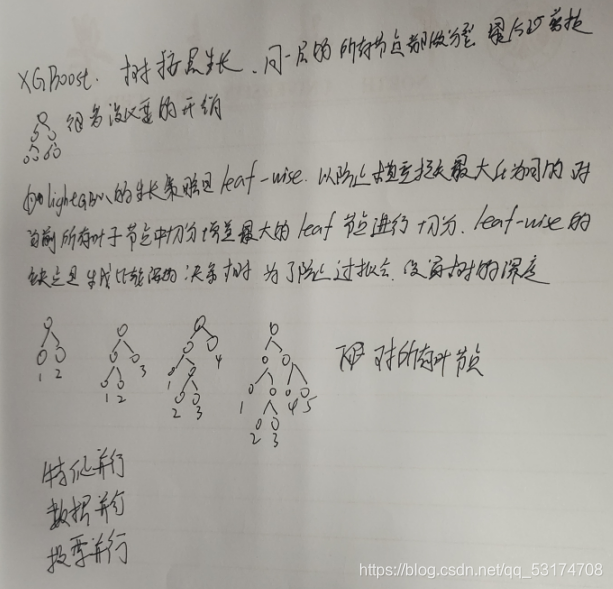 XGBoost. 树按层生长、同一层的所有节点都做分裂, 最后剪枝
很多没必要的开销
lightGBM的生长策略是leaf-wise. 以降低模型损失最大化为目的 对
当前所有叶子节点中切分增益最大的leaf节点进行切分. leaf-wise的
缺点是生成比较深的决策树 为了防止过拟合 设置树的深度
1 2
1 2 3
1 2 3 4
1 2 3 4 5
对所有叶节点
特征并行
数据并行
投票并行
https://blog.csdn.net/qq_53174708